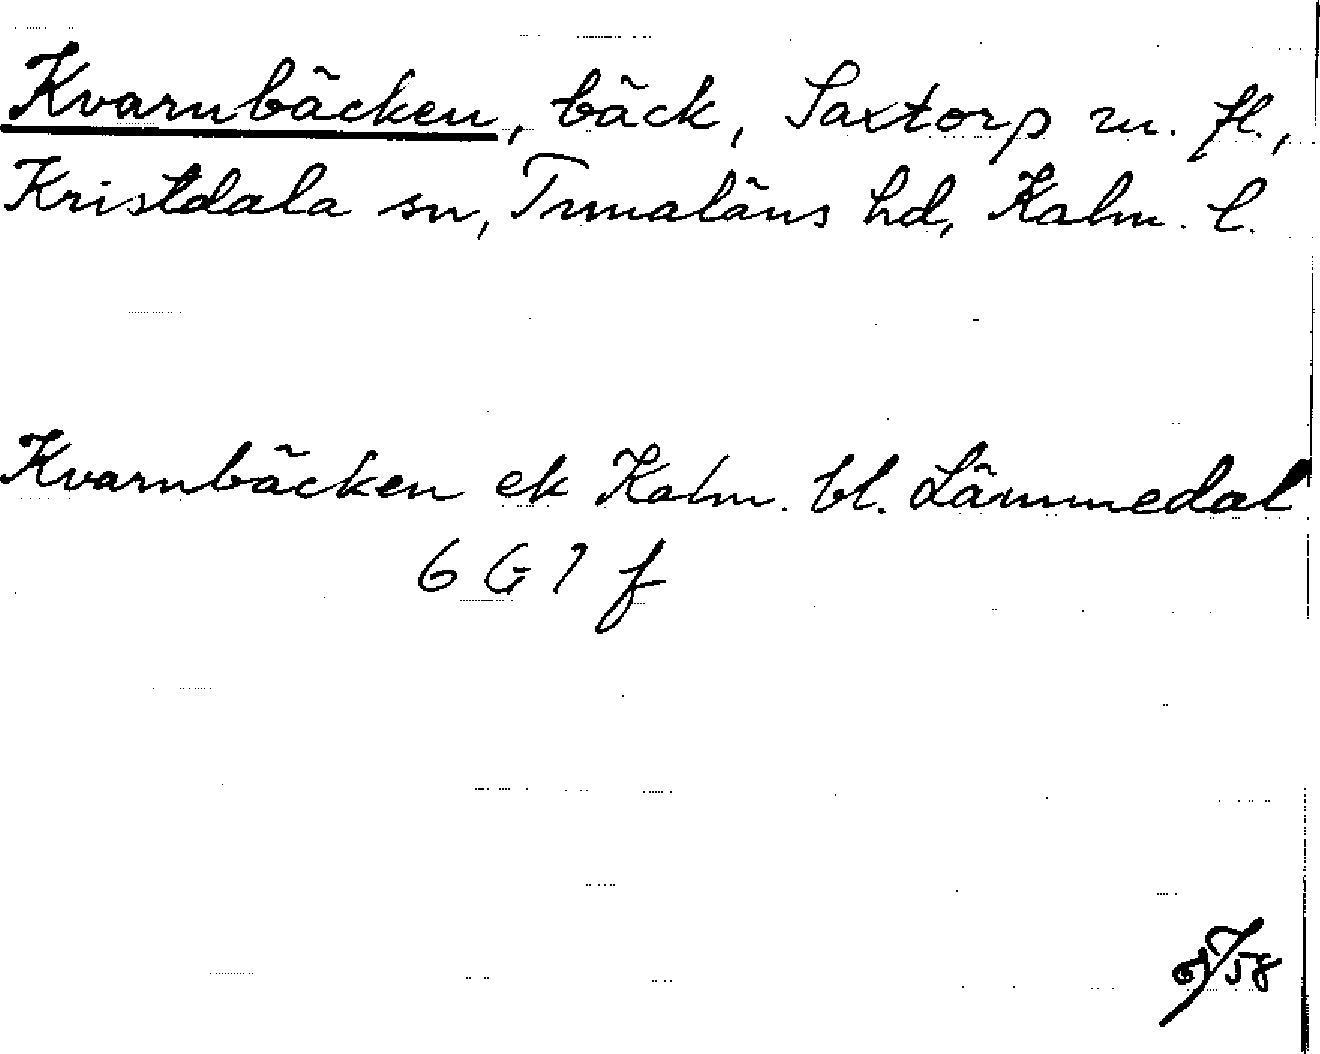 Kvarnbäcken, bäck, Saxtorp m. fl.,
Kristdala sn, Tunaläns hd, Kalm. l.
Kvarnbäcken ek Kalm. bl. Lämmedal
6 G 7 f